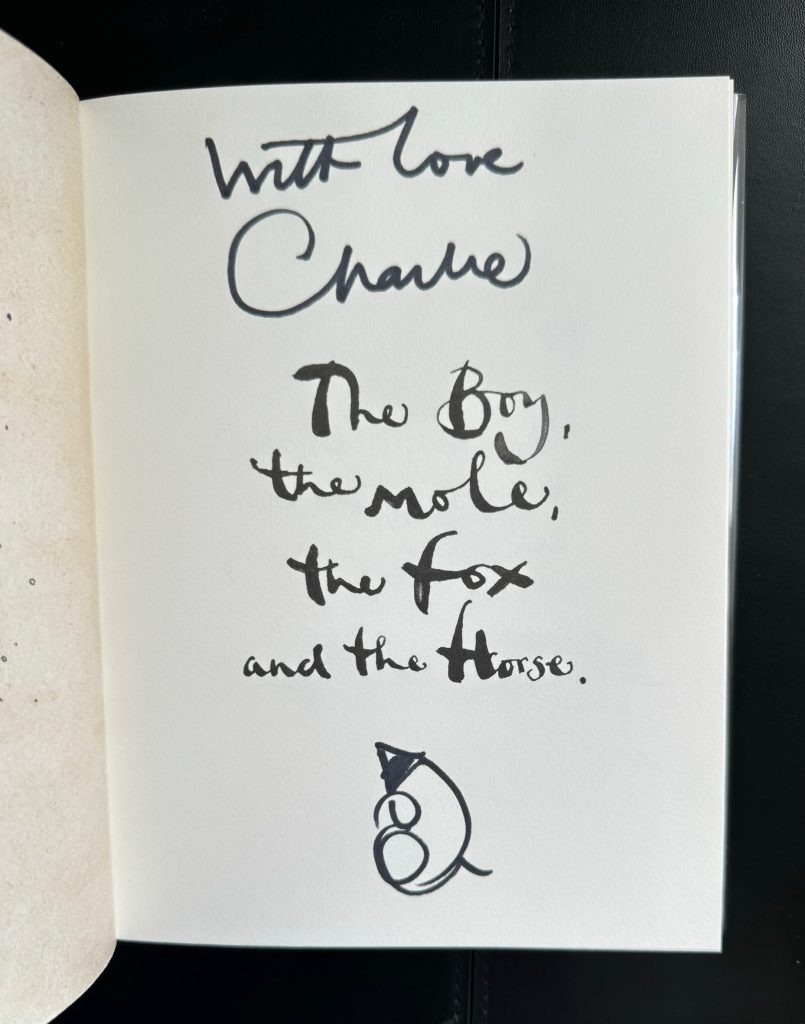 With love
Charlie
The Boy,
the mole,
the fox
and the Horse.